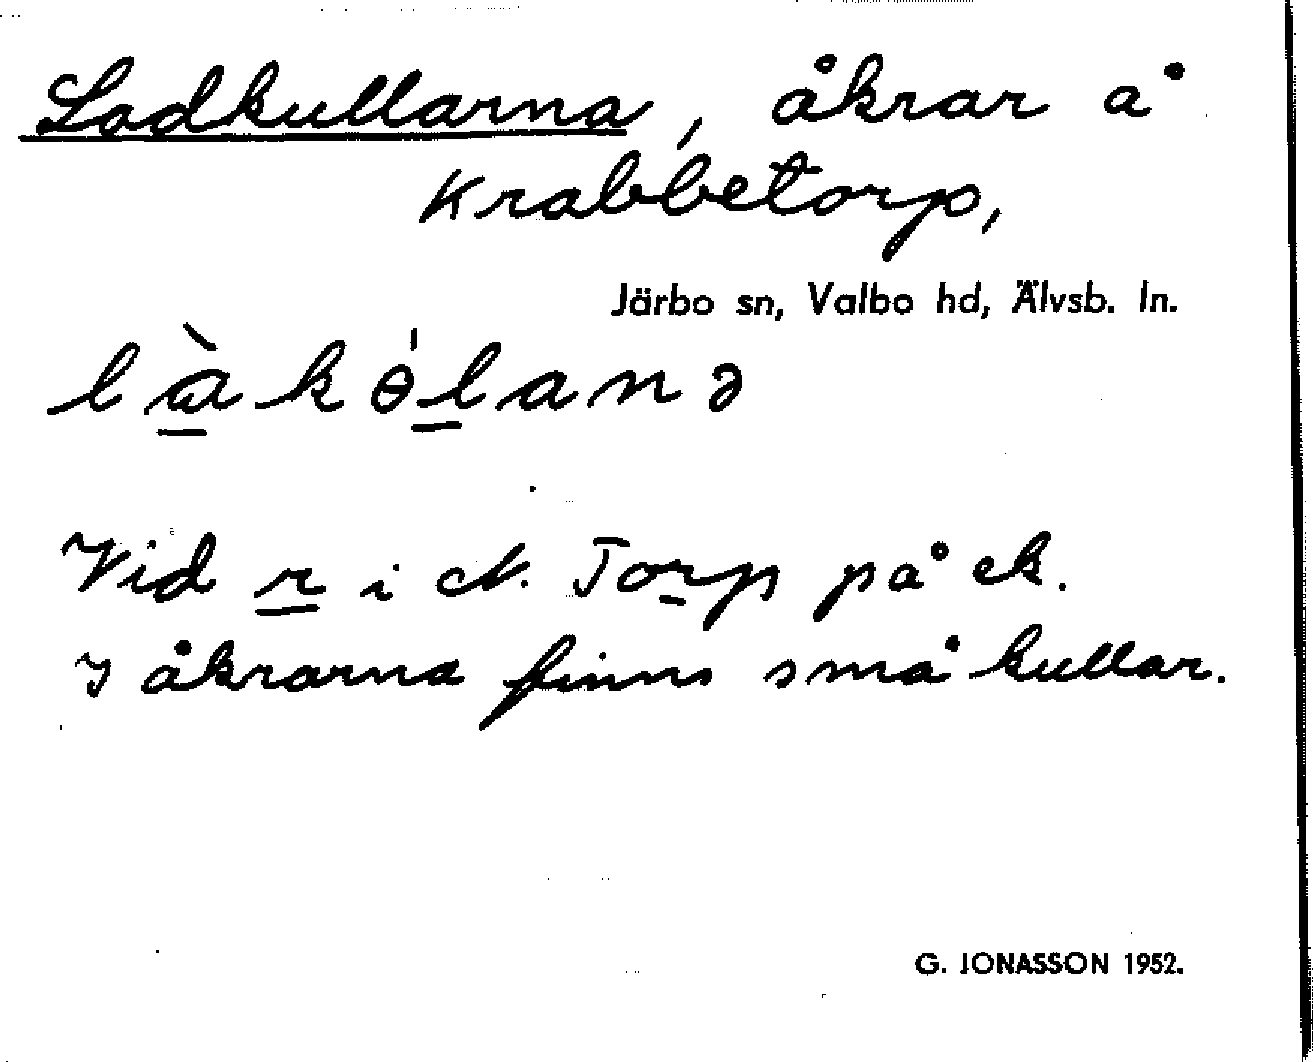 Ladkullarna, åkrar å
Krabbetorp,
Järbo sn, Valbo hd, Älvsb. ln.
Vid r i N. Torp på ek.
I åkrarna finns små kullar.
G. JONASSON 1952.